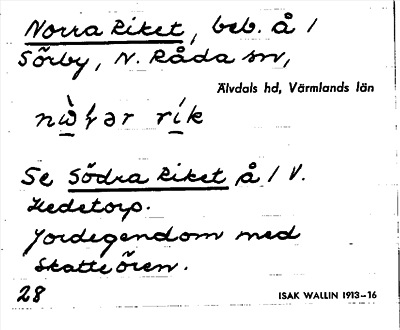 Norra Riket, beb. å 1
Sörby, N. Råda sn,
Älvdals hd, Värmlands län
rík
Se Södra Riket å 1 V.
Hedetorp.
Jordegendom med
Skatteören.
28
ISAK WALLIN 1913–16